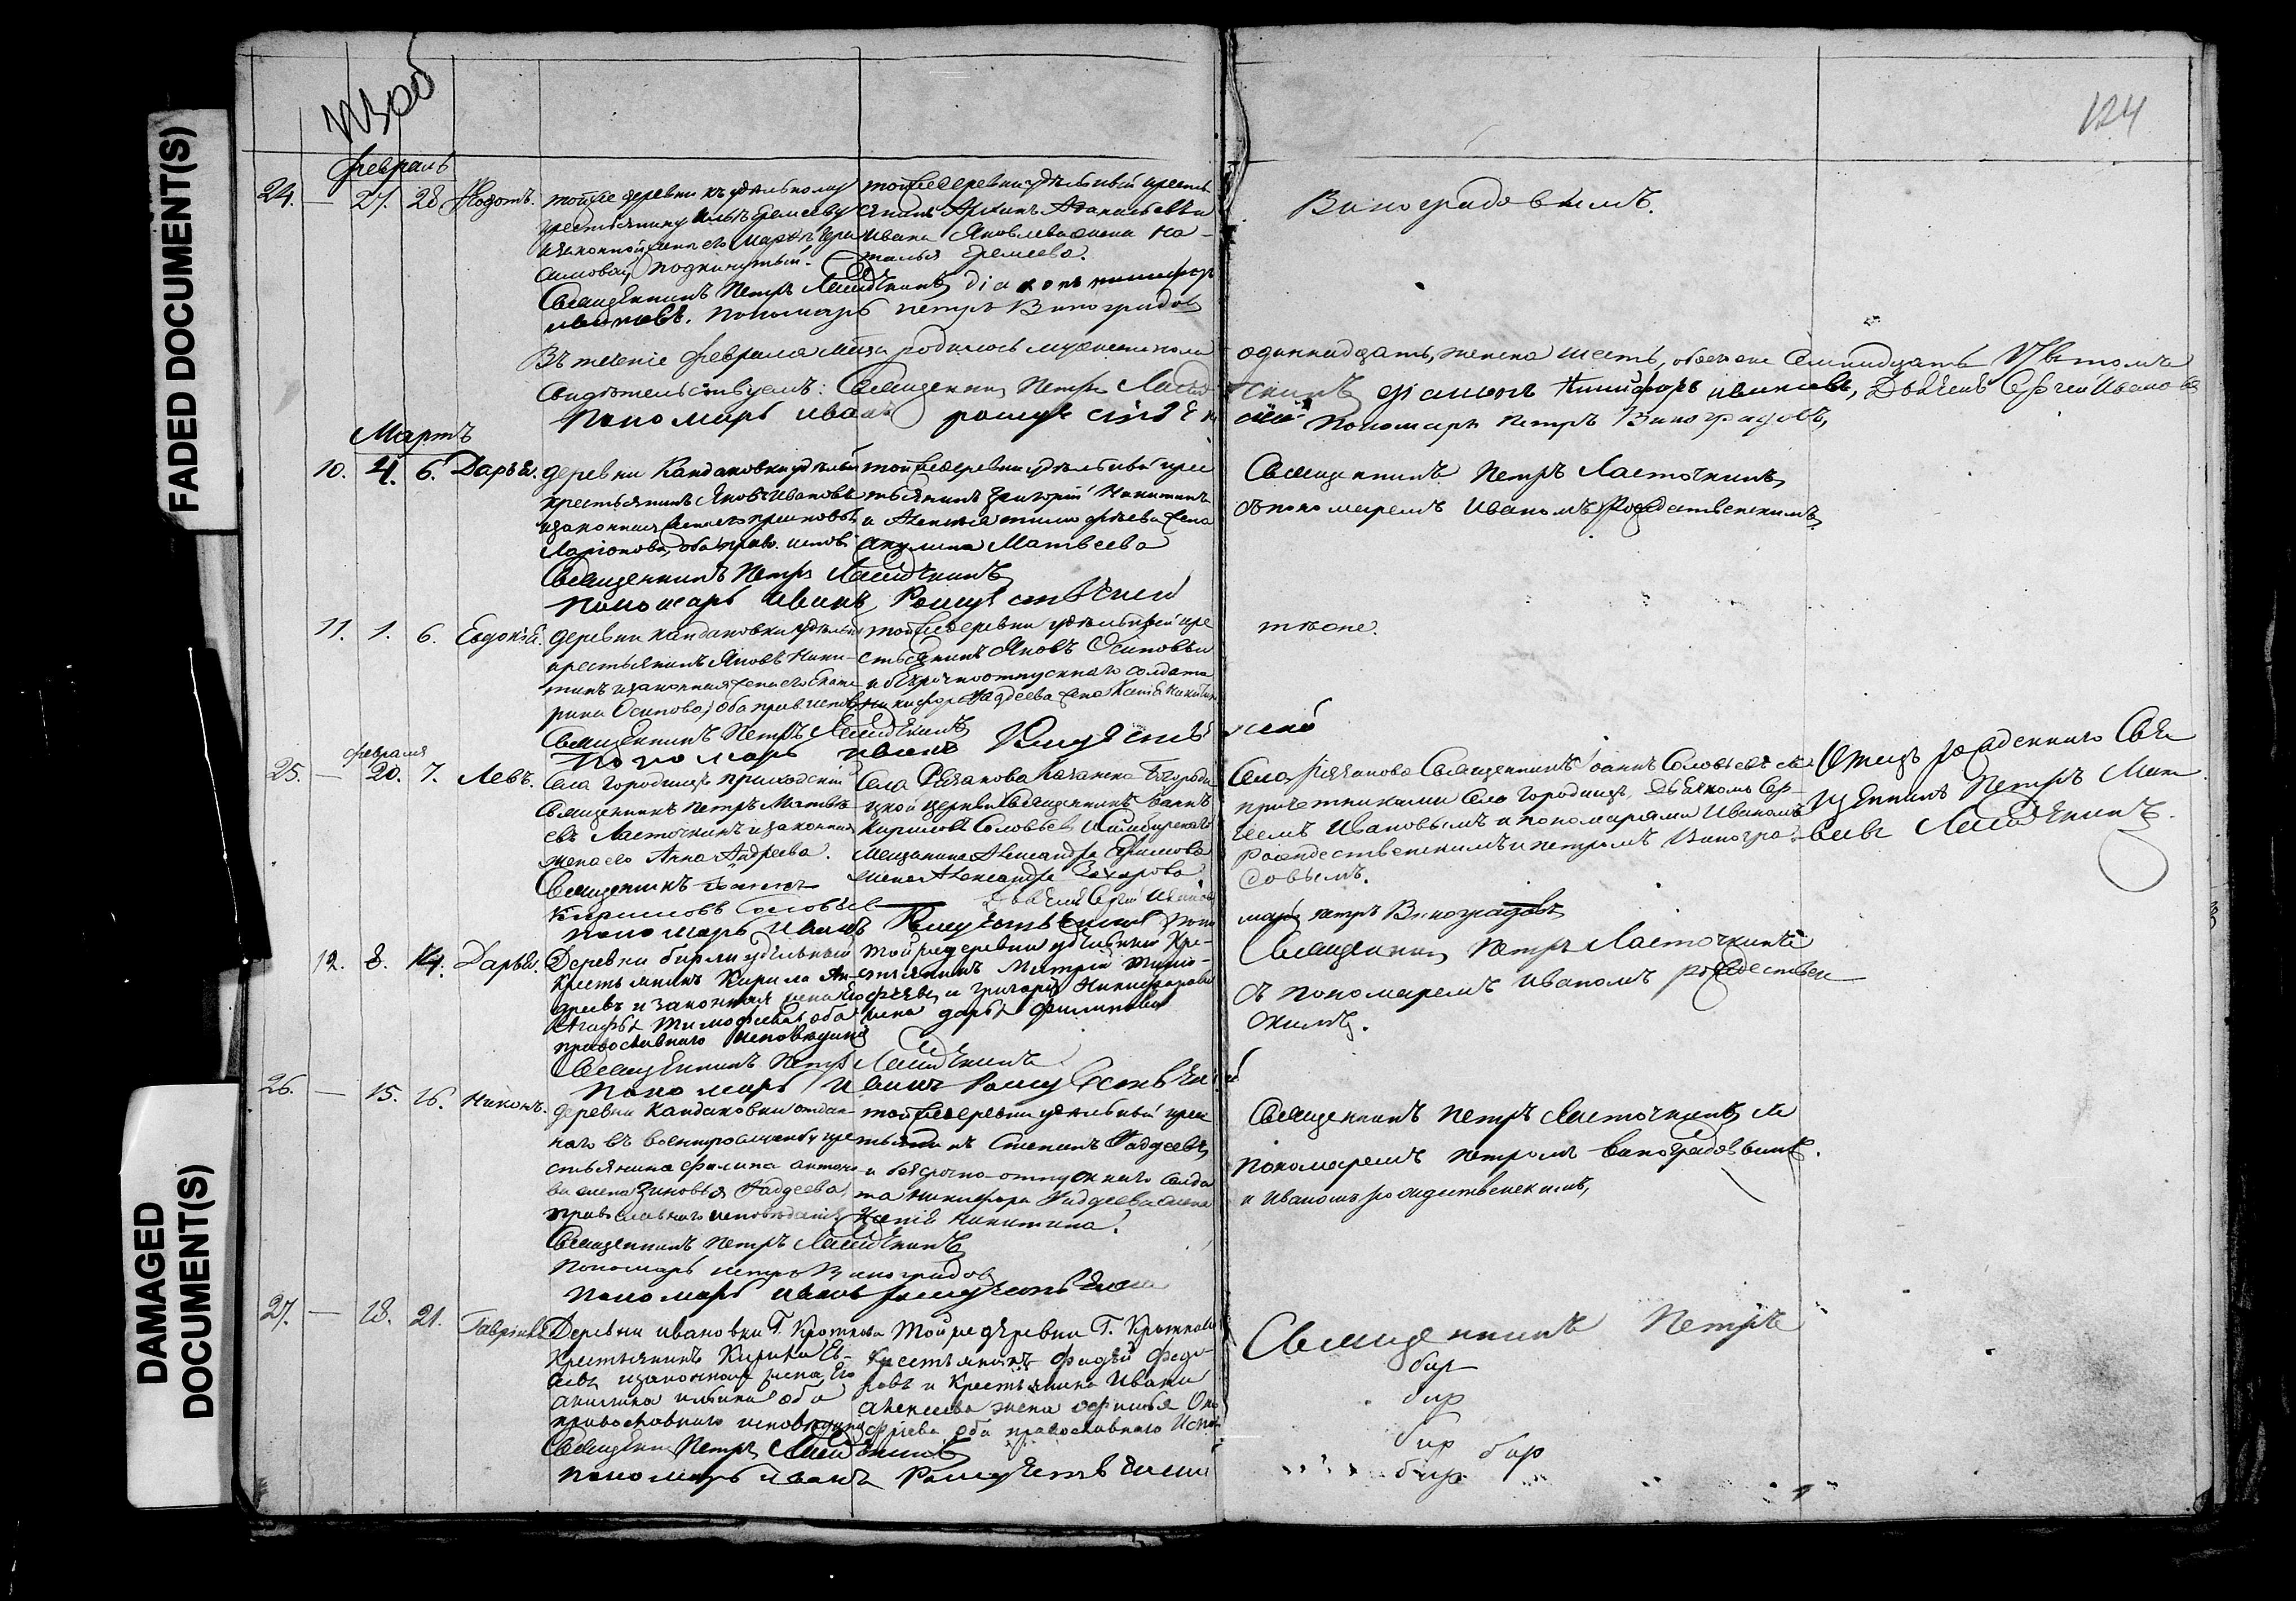 FADED DOCUMENT(S)
DAMAGED DOCUMENT(S)
124
Февраль
24. — 27. 28 Ѳедотъ.
тойже деревни къ удѣльному
крестьянину Еремееву
законной женѣ его Марѳѣ
подкинутый.
тойже деревни удѣльный кресть
янинъ
Ивана Яковлева жена На-
талья Еремеева.
Виноградовымъ.
Священникъ Петръ Ласточкинъ діаконъ Никифоръ
Ивановъ. Пономарь Петръ Виноградовъ
Въ теченіе Февраля м-ца родилось мужеска пола одиннадцать, женска шесть, обоегоже семнадцать Въ томъ
свидѣтельствуемъ: Священникъ Петръ Ласточкинъ діаконъ Никифоръ Ивановъ, Дьячекъ Сергей Ивановъ
Пономарь Иванъ Рождественскій Пономарь Петръ Виноградовъ,
Мартъ
10. 4. 6. Дарья.
деревни Кандаковки удѣльный
крестьянинъ Яковъ Ивановъ
и законная жена его
Ларіонова, оба прав. испов.
тойже деревни удѣльный крес
тьянинъ Григорій Никитинъ
и Алексѣя Тимофѣева жена
Акулина Матвеева
Священникъ Петръ Ласточкинъ
съ пономаремъ Иваномъ Рождественскимъ
Священникъ Петръ Ласточкинъ
Пономарь Иванъ Рождественскій
11. 1. 6. Евдокія.
деревни Кандаковки удѣльный
крестьянинъ Яковъ Ники-
тинъ и законная жена его Екате
рина Осипова, оба прав. испов.
тойже деревни удѣльный кре
стьянинъ Яковъ Осиповъ
и безсрочноотпускнаго солдата
Никифора Фадеева жена Ксенія Никитина
тѣже.
Священникъ Петръ Ласточкинъ
Пономарь Иванъ Рождественской
Февраля
25. — 20. 7. Левъ.
Села Городищъ приходскій
Священникъ Петръ Матвѣ-
евъ Ласточкинъ и законная
жена его Анна Андреева.
Села Рязанова Казанско Богороди
цкой церкви священникъ Іоаннъ
Кириловъ Соловьевъ и Симбирскаго
мещанина Александра Ефимова
жена Александра Захарова
Села Рязанова Священникъ Іоаннъ Соловьевъ съ
причетниками села Городищъ, Дьячкомъ Сер-
геемъ Ивановымъ и пономарями Иваномъ
Рождественскимъ и Петромъ Виногра-
довымъ.
Отецъ рожденнаго Свя
щенникъ Петръ Мат
вѣевъ Ласточкинъ.
Священникъ Іоаннъ
Кириловъ Соловьевъ Дьячекъ Сергій Ивановъ
Пономарь Иванъ Рождественскій Поно
марь Петръ Виноградовъ
12. 8. 14. Дарья.
Деревни Бирли удѣльный
крестьянинъ Кирила Ан-
дреевъ и законная жена его
Агафья Тимофеева, оба
православнаго исповеданія
Тойже деревни удѣльный Кре-
стьянинъ Митрій Тимо-
фѣевъ и Григорія Никифорова
жена Дарья Филипова
Священникъ Петръ Ласточкинъ
съ пономаремъ Иваномъ Рождествен
скимъ.
Священникъ Петръ Ласточкинъ
Пономарь Иванъ Рождественскій
26. — 15. 16. Никонъ.
деревни Кандаковки отдан
наго въ военную службу кре
стьянина Филипа Антоно
ва жена Зиновья Фадеева,
православнаго исповѣданія
тойже деревни удѣльный крес
тьянинъ Степанъ Фадеевъ
и безсрочно-отпускнаго солда
та Никифора Фадеева жена
Ксенія Никитина.
Священникъ Петръ Ласточкинъ съ
пономаремъ Петромъ Виноградовымъ.
и Иваномъ Рождественскимъ,
Священникъ Петръ Ласточкинъ
Пономарь Петръ Виноградовъ
Пономарь Иванъ Рождественскій
27. — 18. 21. Гавріилъ
Деревни Ивановки Г. Кроткова
крестьянинъ Кирила
и законная жена его
оба
православнаго исповеданія
Тойже деревни Г. Кроткова
Крестьянинъ Фадѣй Федо-
ровъ и Крестьянина Ивана
Алексеева жена Офимья Оно
фріева, оба православнаго Испов
Священникъ Петръ
Священникъ Петръ Ласточкинъ
Пономарь Иванъ Рождественскій